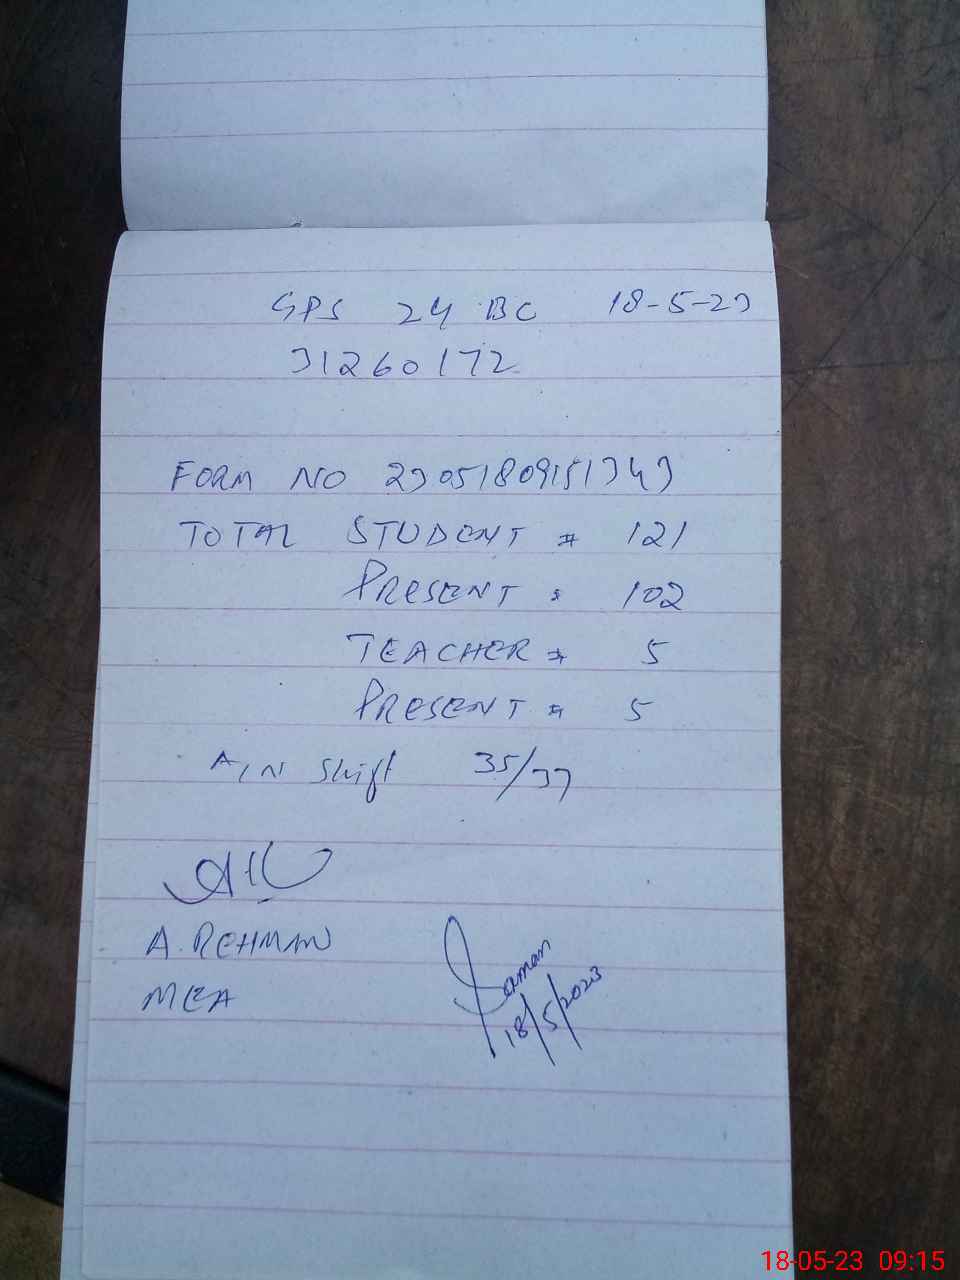 GPS 24 BC 18-5-23
31260172
FORM NO 23051809151343
TOTAL STUDENT = 121
PRESENT = 102
TEACHER = 5
PRESENT = 5
A/N Shift 35/37
A. REHMAN
MEA
18/5/2023
18-05-23 09:15